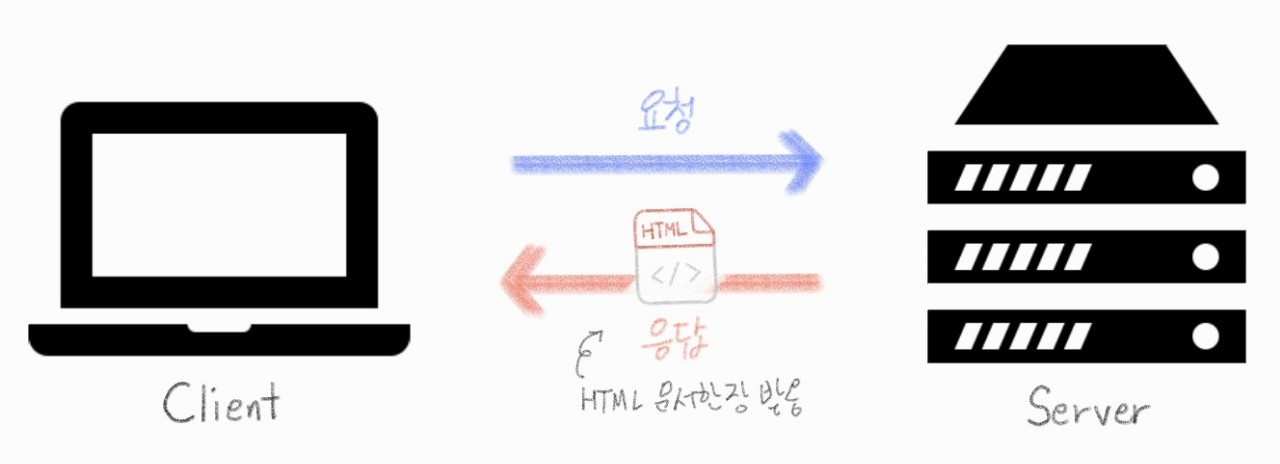 요청
HTML
</>
응답
HTML 문서한장 받음
Client
Server